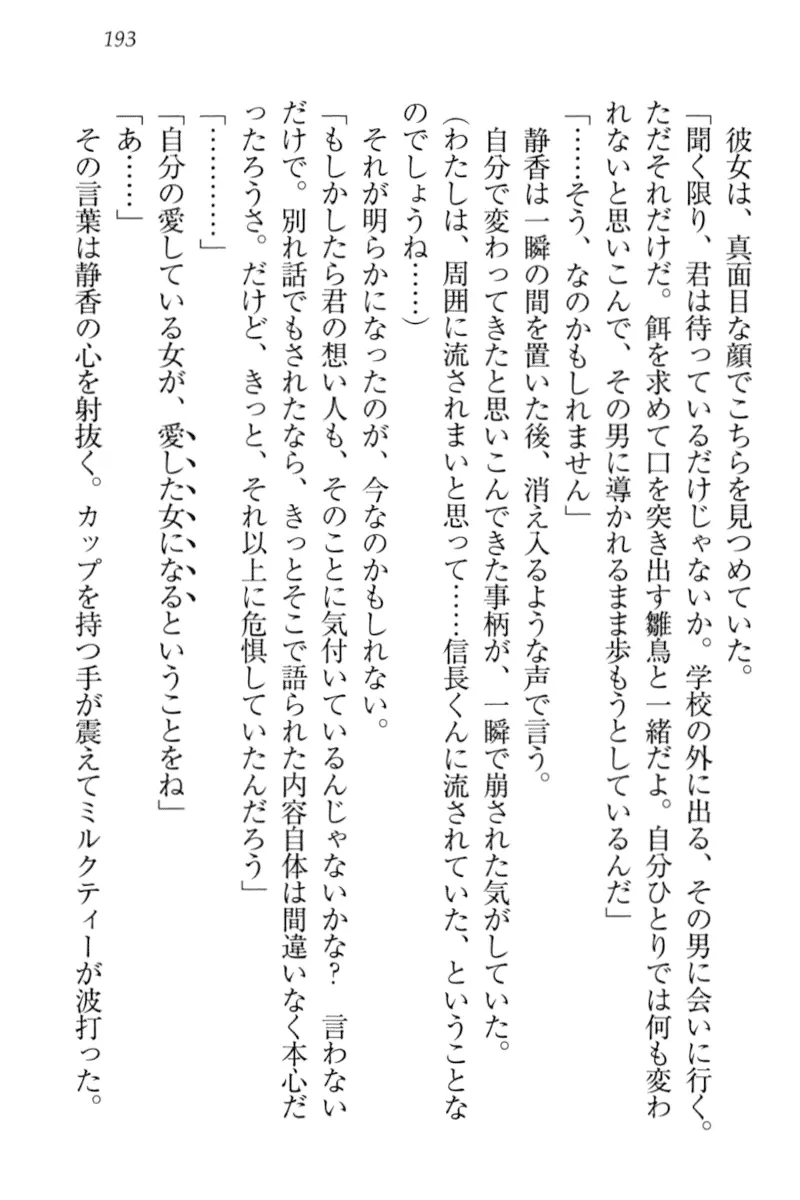 193
彼女は、真面目な顔でこちらを見つめていた。
「聞く限り、君は待っているだけじゃないか。学校の外に出る、その男に会いに行く。
ただそれだけだ。餌を求めて口を突き出す雛鳥と一緒だよ。自分ひとりでは何も変わ
れないと思いこんで、その男に導かれるまま歩もうとしているんだ」
「……そう、なのかもしれません」
静香は一瞬の間を置いた後、消え入るような声で言う。
自分で変わってきたと思いこんできた事柄が、一瞬で崩された気がしていた。
(わたしは、周囲に流されまいと思って……信長くんに流されていた、ということな
のでしょうね……)
それが明らかになったのが、今なのかもしれない。
「もしかしたら君の想い人も、そのことに気付いているんじゃないかな?　言わない
だけで。別れ話でもされたなら、きっとそこで語られた内容自体は間違いなく本心だ
ったろうさ。だけど、きっと、それ以上に危惧していたんだろう」
「…………」
「自分の愛している女が、愛した女になるということをね」
「あ……」
その言葉は静香の心を射抜く。カップを持つ手が震えてミルクティーが波打った。